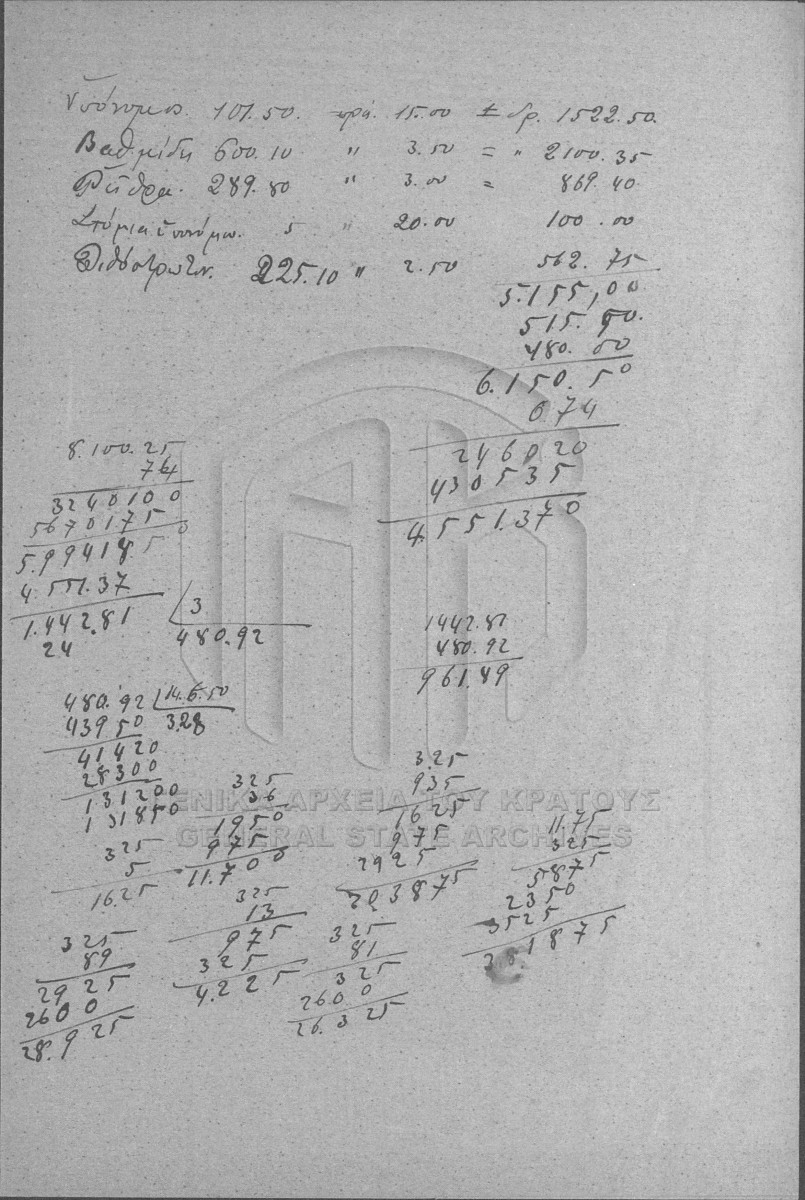 Υπόνομος. 101.50. πρὸς. 15.00 = δρ. 1522.50.
Βαθμίδη 600.10 " 3.50 = " 2100.35
Ρεῖθρα. 289.80 " 3.00 = 869.40
Στόμια ὑπονόμω. 5 " 20.00 100.00
Λιθόστρωτον. 225.10 " 2.50 562.75
5.155,00
515.50.
480.00
6.150.50
074
246020
430535
4.551.370
8.100.25
74
3240100
5670175
5.9941850
4.551.37
1.442.81 3
24 480.92
1442.81
480.92
961.89
480.92 14.6.50
43950 3.28
41420
28300
131200
131850
325
5
16.25
325
36
1950
975
11.700
3.25
935
1625
975
2925
303875
11.75
325
5875
2350
3525
381875
325
89
2925
2600
28.925
325
13
975
325
4.225
325
81
325
2600
26.325
ΓΕΝΙΚΑ ΑΡΧΕΙΑ ΤΟΥ ΚΡΑΤΟΥΣ
GENERAL STATE ARCHIVES